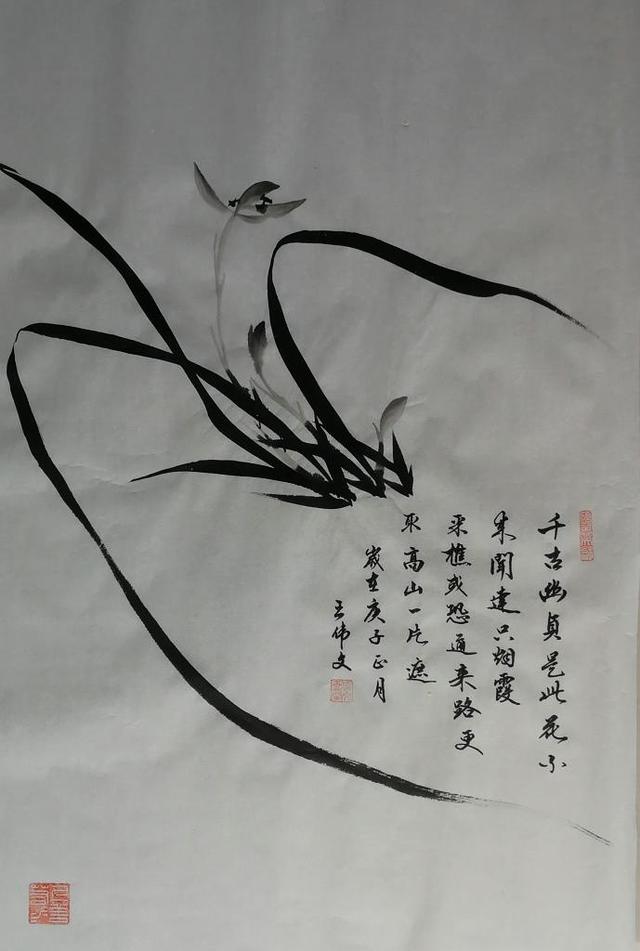 千古幽貞是此花不
求聞達只烟霞
采樵或恐通来路更
取高山一片遮
嵗在庚子正月
王伟文